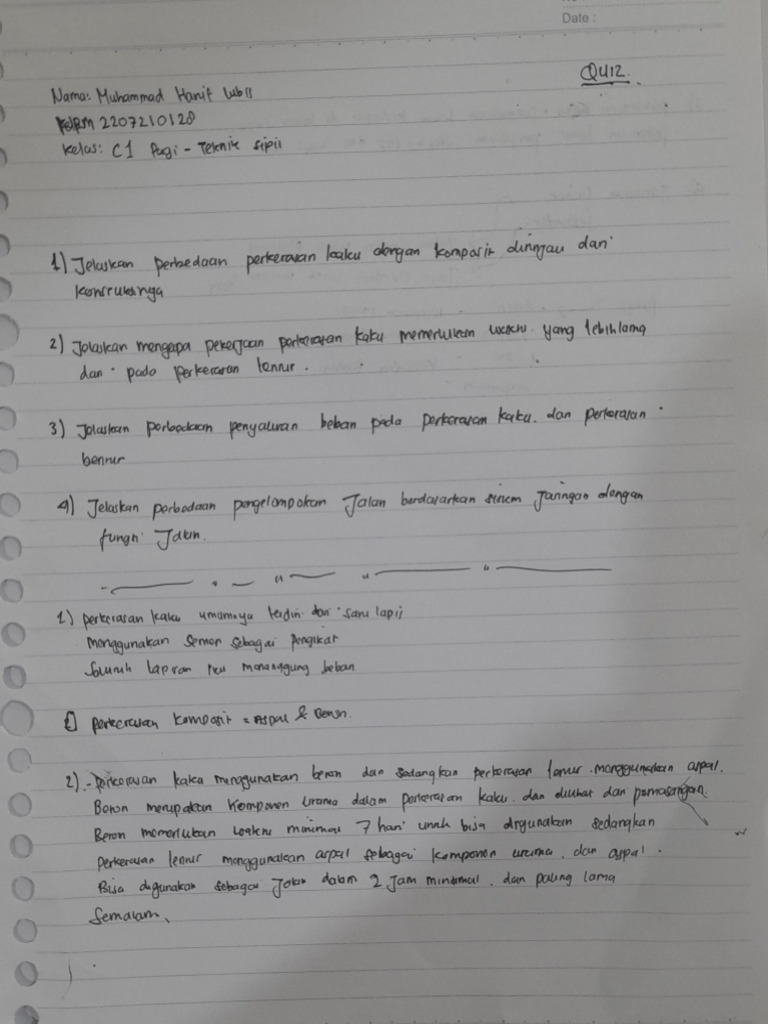 Date :
QUIZ.
Nama: Muhammad Hanif Lubis
2207210128
Kelas: C1 Pagi - Teknik Sipil
1) Jelaskan perbedaan perkerasan kaku dengan komposit ditinjau dari
konstruksinya
2) Jelaskan mengapa pekerjaan perkerasan kaku memerlukan waktu yang lebih lama
dari pada perkerasan lentur.
3) Jelaskan perbedaan penyaluran beban pada perkerasan kaku dan perkerasan
lentur
4) Jelaskan perbedaan pengelompokan Jalan berdasarkan sistem Jaringan dengan
fungsi Jalan.
1) perkerasan kaku umumnya terdiri dari satu lapis
menggunakan Semen sebagai Pengikat
Seluruh lapisan menanggung beban
perkerasan komposit = Aspal & Beton.
2) - Perkerasan kaku menggunakan beton dan sedangkan perkerasan lentur menggunakan aspal.
Beton merupakan komponen utama dalam perkerasan kaku dan dilihat dari pemasangan.
Beton memerlukan waktu minimal 7 hari untuk bisa digunakan sedangkan
perkerasan lentur menggunakan aspal sebagai komponen utama, dan aspal.
Bisa digunakan sebagai Jalan dalam 2 Jam minimal. dan paling lama
Semalam,